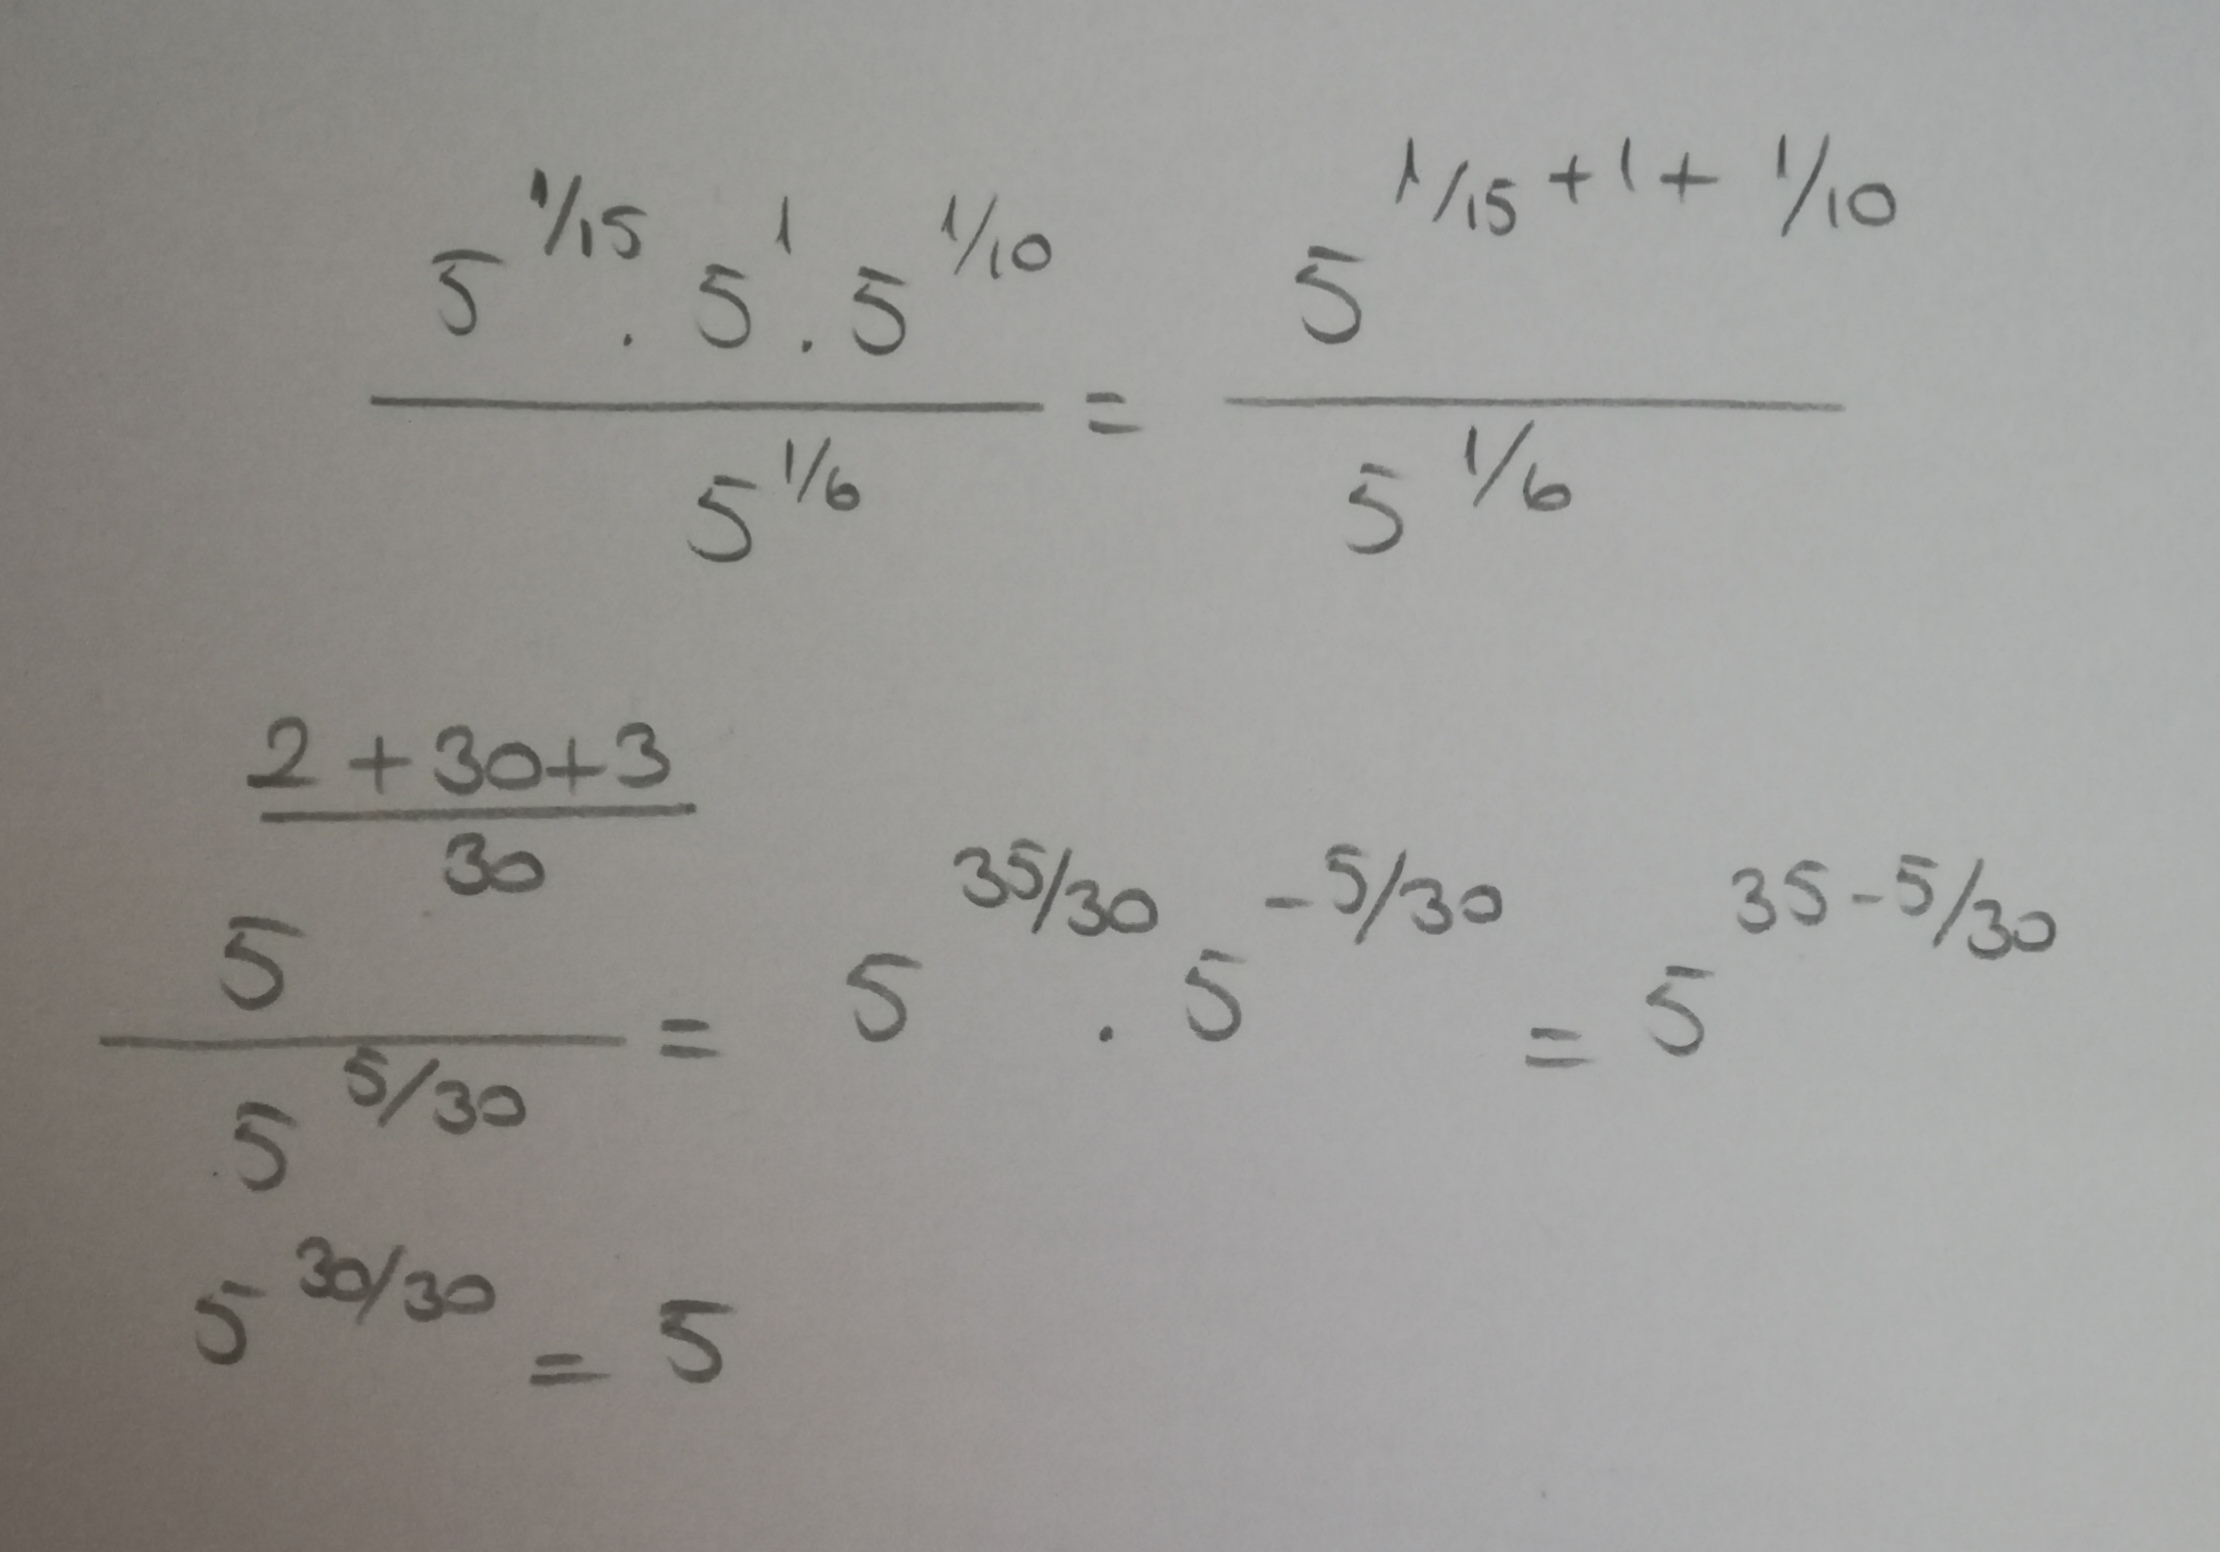 5^1/15 . 5^1 . 5^1/10 / 5^1/6 = 5^1/15 + 1 + 1/10 / 5^1/6
5^(2 + 30 + 3 / 30) / 5^5/30 = 5^35/30 . 5^-5/30 = 5^35 - 5/30
5^30/30 = 5